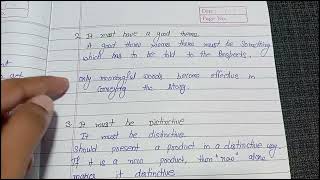 Date
Page No.
2. It must have a good theme.
A good theme means there must be something
which has to be told to the prospects.
only meaningful words become effective in
conveying the story.
3. It must be Distinctive
It must be distinctive
should present a product in a distinctive way.
If it is a new product, then 'new' alone
makes it distinctive